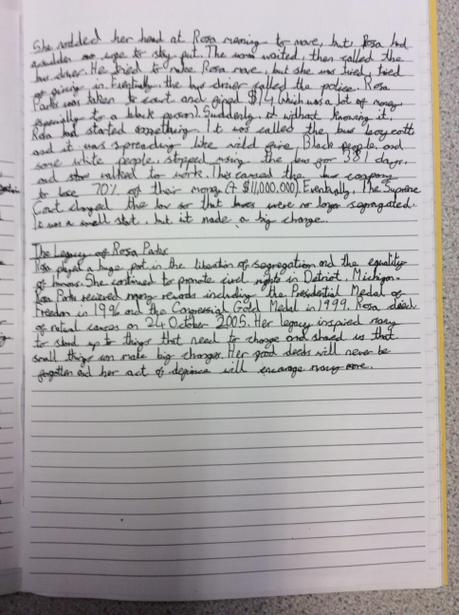 She nodded her head at Rosa meaning to move, but, Rosa had
a sudden urge to stay put. The woman waited, then called the
bus driver. He tried to make Rosa move, but she was tired, tired
of giving in. Eventually, the bus driver called the police. Rosa
Parks was taken to court and fined $14 (which was a lot of money
especially to a black person). Suddenly, without knowing it,
Rosa had started something. It was called the bus boycott
and it was spreading like wild fire. Black people, and
some white people, stopped using the bus for 381 days,
and walked to work. This caused the bus company
to lose 70% of their money ($11,000,000). Eventually, The Supreme
Court changed the law so that buses were no longer segregated.
It was a small start, but it made a big change.
The Legacy of Rosa Parks
Rosa played a huge part in the liberation of segregation and the equality
of humans. She continued to promote civil rights in Detriot, Michigan.
Rosa Parks recieved many rewards including the Presidential Medal of
Freedom in 1996 and the Congressional Gold Medal in 1999. Rosa died
of natural causes on 24 October 2005. Her legacy inspired many
to stand up to things that need to change and shared us that
small things can make big changes. Her good deeds will never be
forgotten and her act of defiance will encourage many more.